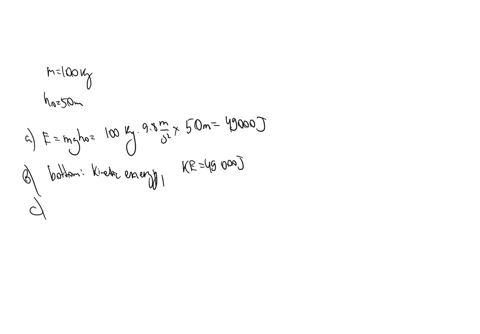 m=100kg
h₀=50m
a) E=mgh₀= 100 kg · 9.8 m/s² × 50m= 49000J
b) bottom: kinetic energy, KE=49 000J
c)